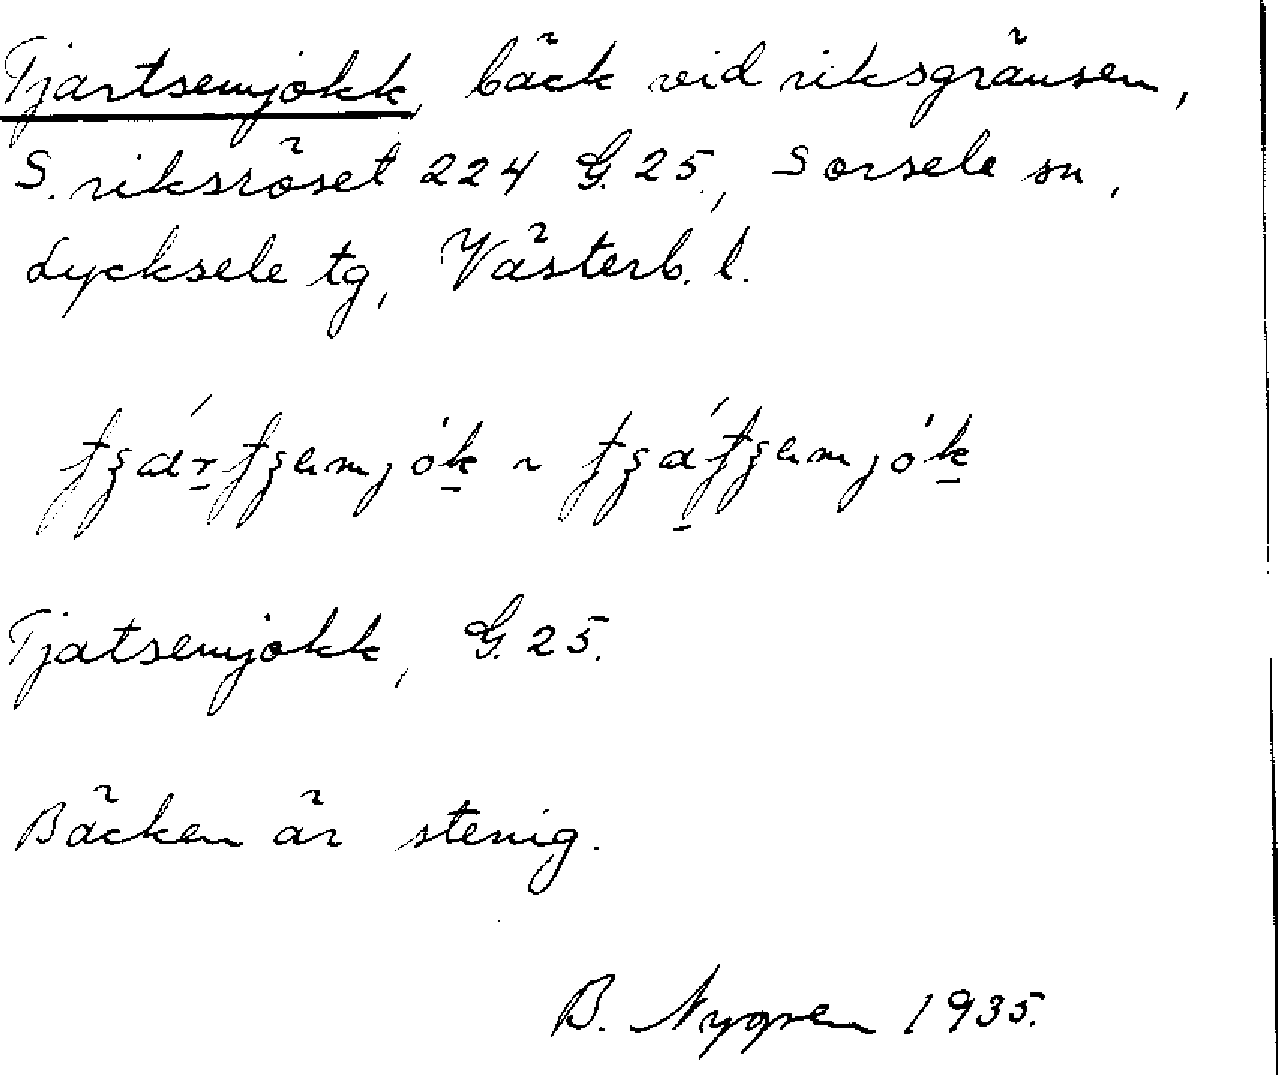 Tjartsemjokk, bäck vid riksgränsen,
S. riksröset 224 G. 25, Sorsele sn,
Lycksele tg, Västerb. l.
Tjatsemjokk, G. 25.
Bäcken är stenig.
B. Nygren 1935.